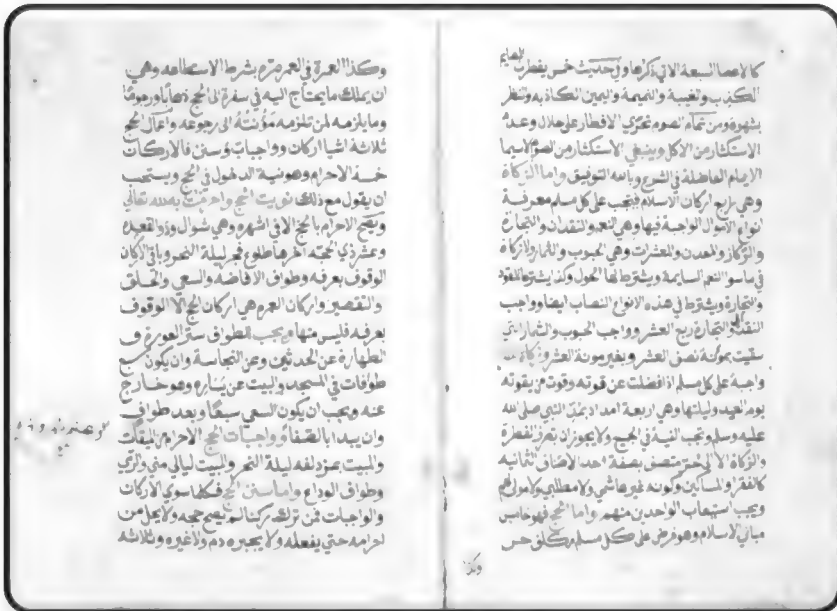 كالاعضا السبعة الاتي ذكرها وفي حديث خمس يفطرن الصايم
الكذب والغيبة والنميمة واليمين الكاذبه والنظر
بشهوة ومن تمام الصوم تحري الافطار على حلال وعدم
الاستكثار من الاكل وينبغي الاستكثار من الصوم لاسيما
الايام الفاضلة في الشرع وبالله التوفيق واما الزكاة
وهي رابع اركان الاسلام فيجب على كل مسلم معرفة
انواع الاموال الواجبة فيها وهي النعم والنقدان والتجارة
والركاز والمعدن والمعشرات وهي الحبوب والثمار ولا زكاة
في ما سوا النعم السايمة ويشترط لها الحول وكذا يشترط للنقود
والتجارة ويشترط في هذه الانواع النصاب ايضا وواجب
النقدين والتجارة ربع العشر وواجب الحبوب والثمار التي
سقيت بمؤنة نصف العشر وبغير مونة العشر وزكاة
واجبة على كل مسلم اذا فضلت عن قوته وقوت من يقوته
يوم العيد وليلتها وهي اربعة امداد بمد النبي صلى الله
عليه وسلم وتجب النية في الجميع ولا يجوز ان يصرف الفطرة
والزكاة الا الى حر متصف بصفة احد الاصناف الثمانيه
كالفقرا والمساكين وكونه غير هاشمي ولا مطلبي ولا مولى لهم
ويجب استيعاب الواجدين منهم واما الحج فهو خامس
مباني الاسلام وهو فرض على كل مسلم مكلف حر
وكذا
وكذا العمرة في العمر مرة بشرط الاستطاعه وهي
ان يملك ما يحتاج اليه في سفره الى الحج ذهابا ورجوعا
وما يلزمه لمن تلزمه مؤنته الى رجوعه واعمال الحج
ثلاثة اشيا اركان وواجبات وسنن فالاركان
خمسة الاحرام وهو نية الدخول في الحج ويستحب
ان يقول مع ذلك نويت الحج واحرمت به لله تعالى
ويصح الاحرام بالحج الا في اشهره وهي شوال وذو القعده
وعشر ذي الحجة اخرها طلوع فجر ليلة النحر وباقي الاركان
الوقوف بعرفه وطواف الافاضه والسعي والحلق
والتقصير واركان العمره هي اركان الحج الا الوقوف
بعرفه فليس منها ويجب للطواف ستر العورة و
الطهارة عن الحدثين وعن النجاسة وان يكون سبع
طوافات في المسجد والبيت عن يساره وهو خارج
عنه ويجب ان يكون السعي سبعا وبعد طواف
وان يبدا بالصفا وواجبات الحج الاحرام من الميقات
والمبيت بمزدلفه ليلة النحر والمبيت ليالي منى والرمي
وطواف الوداع واما سنن الحج فكلما سوى الاركان
والواجبات فمن ترك ركنا لم يصح حجه ولا يحل من
احرامه حتى يفعله ولا يجبره دم ولا غيره وثلاثه